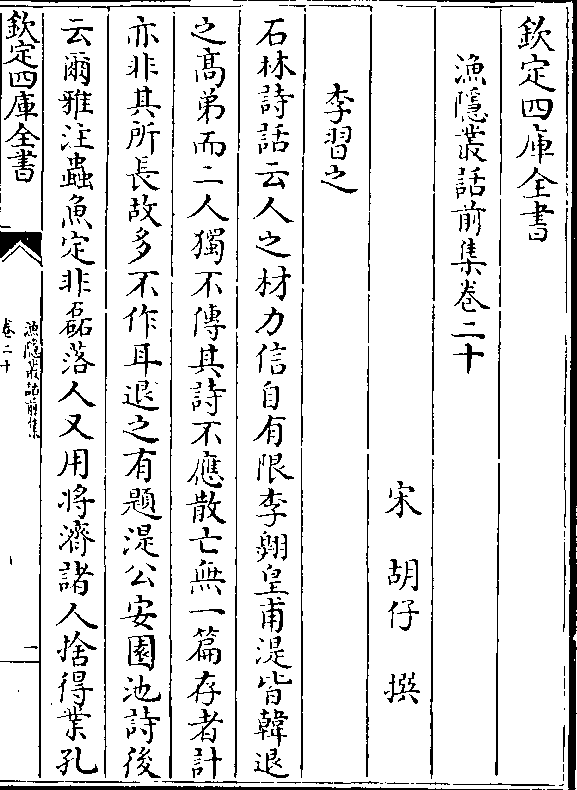 欽定四庫全書
漁隱叢話前集卷二十
宋 胡仔 撰
李習之
石林詩話云人之材力信自有限李翺皇甫湜皆韓退
之髙弟而二人獨不傳其詩不應散亡無一篇存者計
亦非其所長故多不作耳退之有題湜公安園池詩後
云爾雅注蟲魚定非磊落人又用將濟諸人捨得業孔
欽定四庫全書
漁隱叢話前集
卷二十
一